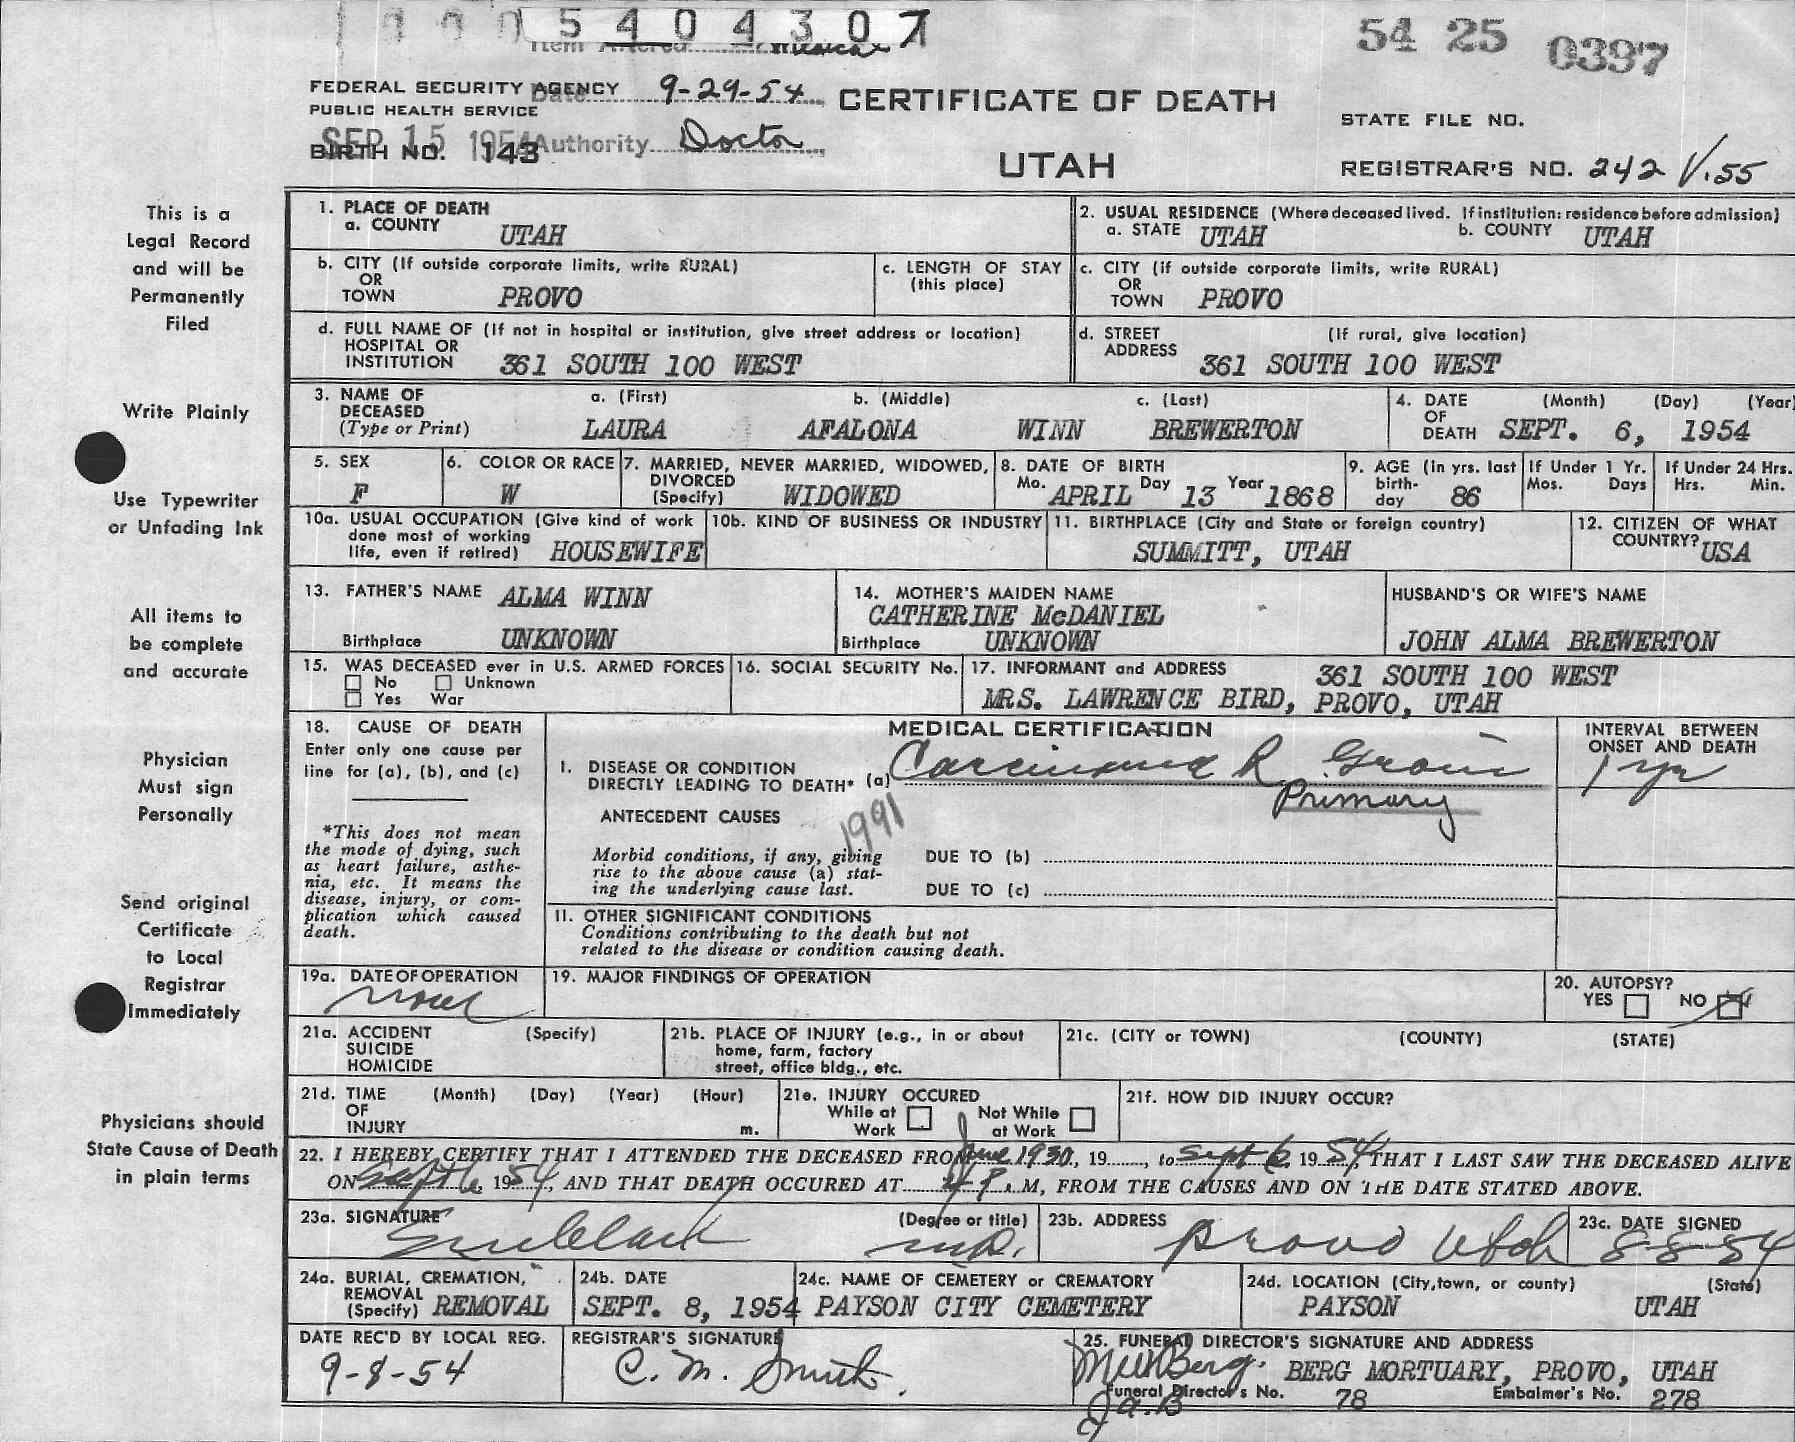 5404307
54 25 0397
Item Altered Medical
FEDERAL SECURITY AGENCY
Date 9-29-54
CERTIFICATE OF DEATH
PUBLIC HEALTH SERVICE
STATE FILE NO.
SEP 15 1954 Authority Doctor
BIRTH NO. 143
UTAH
REGISTRAR'S NO. 242 V.55
This is a
Legal Record
and will be
Permanently
Filed
Write Plainly
Use Typewriter
or Unfading Ink
All items to
be complete
and accurate
Physician
Must sign
Personally
Send original
Certificate
to Local
Registrar
Immediately
Physicians should
State Cause of Death
in plain terms
1. PLACE OF DEATH
a. COUNTY UTAH
2. USUAL RESIDENCE (Where deceased lived. If institution: residence before admission)
a. STATE UTAH b. COUNTY UTAH
b. CITY (If outside corporate limits, write RURAL)
OR
TOWN PROVO
c. LENGTH OF STAY
(this place)
c. CITY (if outside corporate limits, write RURAL)
OR
TOWN PROVO
d. FULL NAME OF (If not in hospital or institution, give street address or location)
HOSPITAL OR
INSTITUTION 361 SOUTH 100 WEST
d. STREET (If rural, give location)
ADDRESS 361 SOUTH 100 WEST
3. NAME OF a. (First) b. (Middle) c. (Last)
DECEASED
(Type or Print) LAURA AFALONA WINN BREWERTON
4. DATE (Month) (Day) (Year)
OF
DEATH SEPT. 6, 1954
5. SEX
F
6. COLOR OR RACE
W
7. MARRIED, NEVER MARRIED, WIDOWED,
DIVORCED
(Specify) WIDOWED
8. DATE OF BIRTH
Mo. APRIL Day 13 Year 1868
9. AGE (in yrs. last
birth-
day 86
If Under 1 Yr.
Mos. Days
If Under 24 Hrs.
Hrs. Min.
10a. USUAL OCCUPATION (Give kind of work
done most of working
life, even if retired) HOUSEWIFE
10b. KIND OF BUSINESS OR INDUSTRY
11. BIRTHPLACE (City and State or foreign country)
SUMMITT, UTAH
12. CITIZEN OF WHAT
COUNTRY? USA
13. FATHER'S NAME ALMA WINN
Birthplace UNKNOWN
14. MOTHER'S MAIDEN NAME
CATHERINE McDANIEL
Birthplace UNKNOWN
HUSBAND'S OR WIFE'S NAME
JOHN ALMA BREWERTON
15. WAS DECEASED ever in U.S. ARMED FORCES
No Unknown
Yes War
16. SOCIAL SECURITY No.
17. INFORMANT and ADDRESS 361 SOUTH 100 WEST
MRS. LAWRENCE BIRD, PROVO, UTAH
18. CAUSE OF DEATH
Enter only one cause per
line for (a), (b), and (c)
*This does not mean
the mode of dying, such
as heart failure, asthe-
nia, etc. It means the
disease, injury, or com-
plication which caused
death.
MEDICAL CERTIFICATION
I. DISEASE OR CONDITION
DIRECTLY LEADING TO DEATH* (a) Carcinoma R Groin
Primary
ANTECEDENT CAUSES
1991
Morbid conditions, if any, giving
rise to the above cause (a) stat-
ing the underlying cause last.
DUE TO (b)
DUE TO (c)
II. OTHER SIGNIFICANT CONDITIONS
Conditions contributing to the death but not
related to the disease or condition causing death.
INTERVAL BETWEEN
ONSET AND DEATH
1 yr
19a. DATE OF OPERATION
none
19. MAJOR FINDINGS OF OPERATION
20. AUTOPSY?
YES NO X
21a. ACCIDENT (Specify)
SUICIDE
HOMICIDE
21b. PLACE OF INJURY (e.g., in or about
home, farm, factory
street, office bldg., etc.
21c. (CITY or TOWN) (COUNTY) (STATE)
21d. TIME (Month) (Day) (Year) (Hour)
OF
INJURY m.
21e. INJURY OCCURED
While at Work
Not While at Work
21f. HOW DID INJURY OCCUR?
22. I HEREBY CERTIFY THAT I ATTENDED THE DECEASED FROM June 1930, 19, to Sept 6, 1954, THAT I LAST SAW THE DECEASED ALIVE
ON Sept 6, 1954, AND THAT DEATH OCCURED AT 4 P. M, FROM THE CAUSES AND ON THE DATE STATED ABOVE.
23a. SIGNATURE (Degree or title)
Clark M.D.
23b. ADDRESS
Provo Utah
23c. DATE SIGNED
8-8-54
24a. BURIAL, CREMATION,
REMOVAL
(Specify) REMOVAL
24b. DATE
SEPT. 8, 1954
24c. NAME OF CEMETERY or CREMATORY
PAYSON CITY CEMETERY
24d. LOCATION (City, town, or county) (State)
PAYSON UTAH
DATE REC'D BY LOCAL REG.
9-8-54
REGISTRAR'S SIGNATURE
C. M. Smith
25. FUNERAL DIRECTOR'S SIGNATURE AND ADDRESS
Berg. BERG MORTUARY, PROVO, UTAH
Funeral Director's No. 78 Embalmer's No. 278